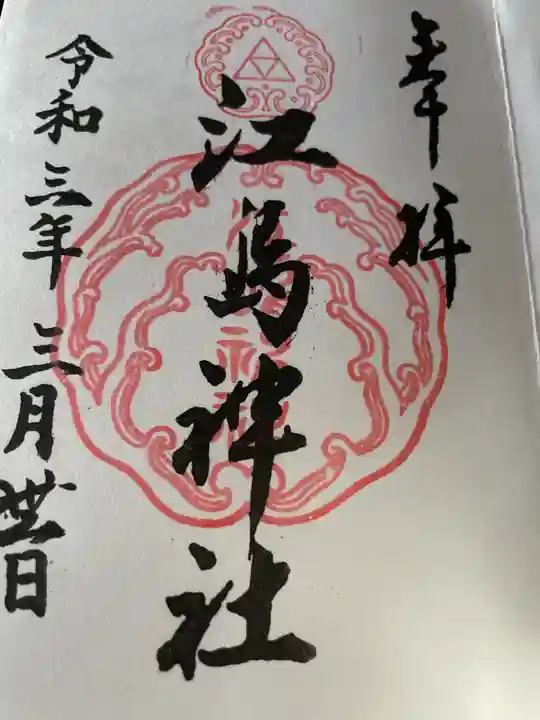 奉拝
江島神社
令和三年三月日